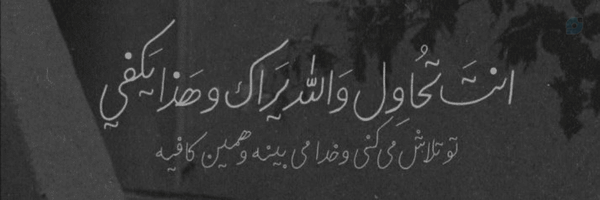 انتَ تُحاوِل وَالله يَراك وهَذا يَكفي
تو تلاش می کنی و خدا می بینه و همین کافیه